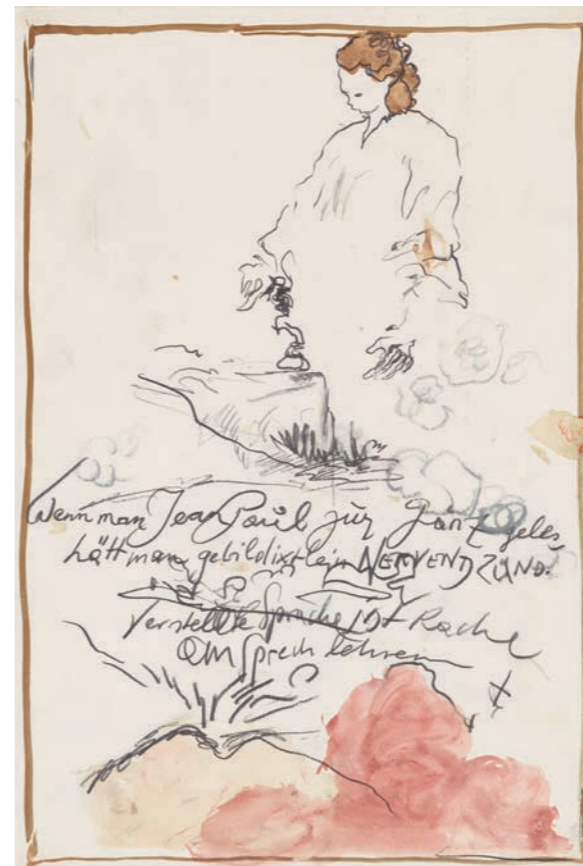 Wenn man Jean Paul zur Gänze geles
hätt man gebildixt ein NERVENDZÜND.
Verstellte Sprache ist Rache
am Sprech lehren